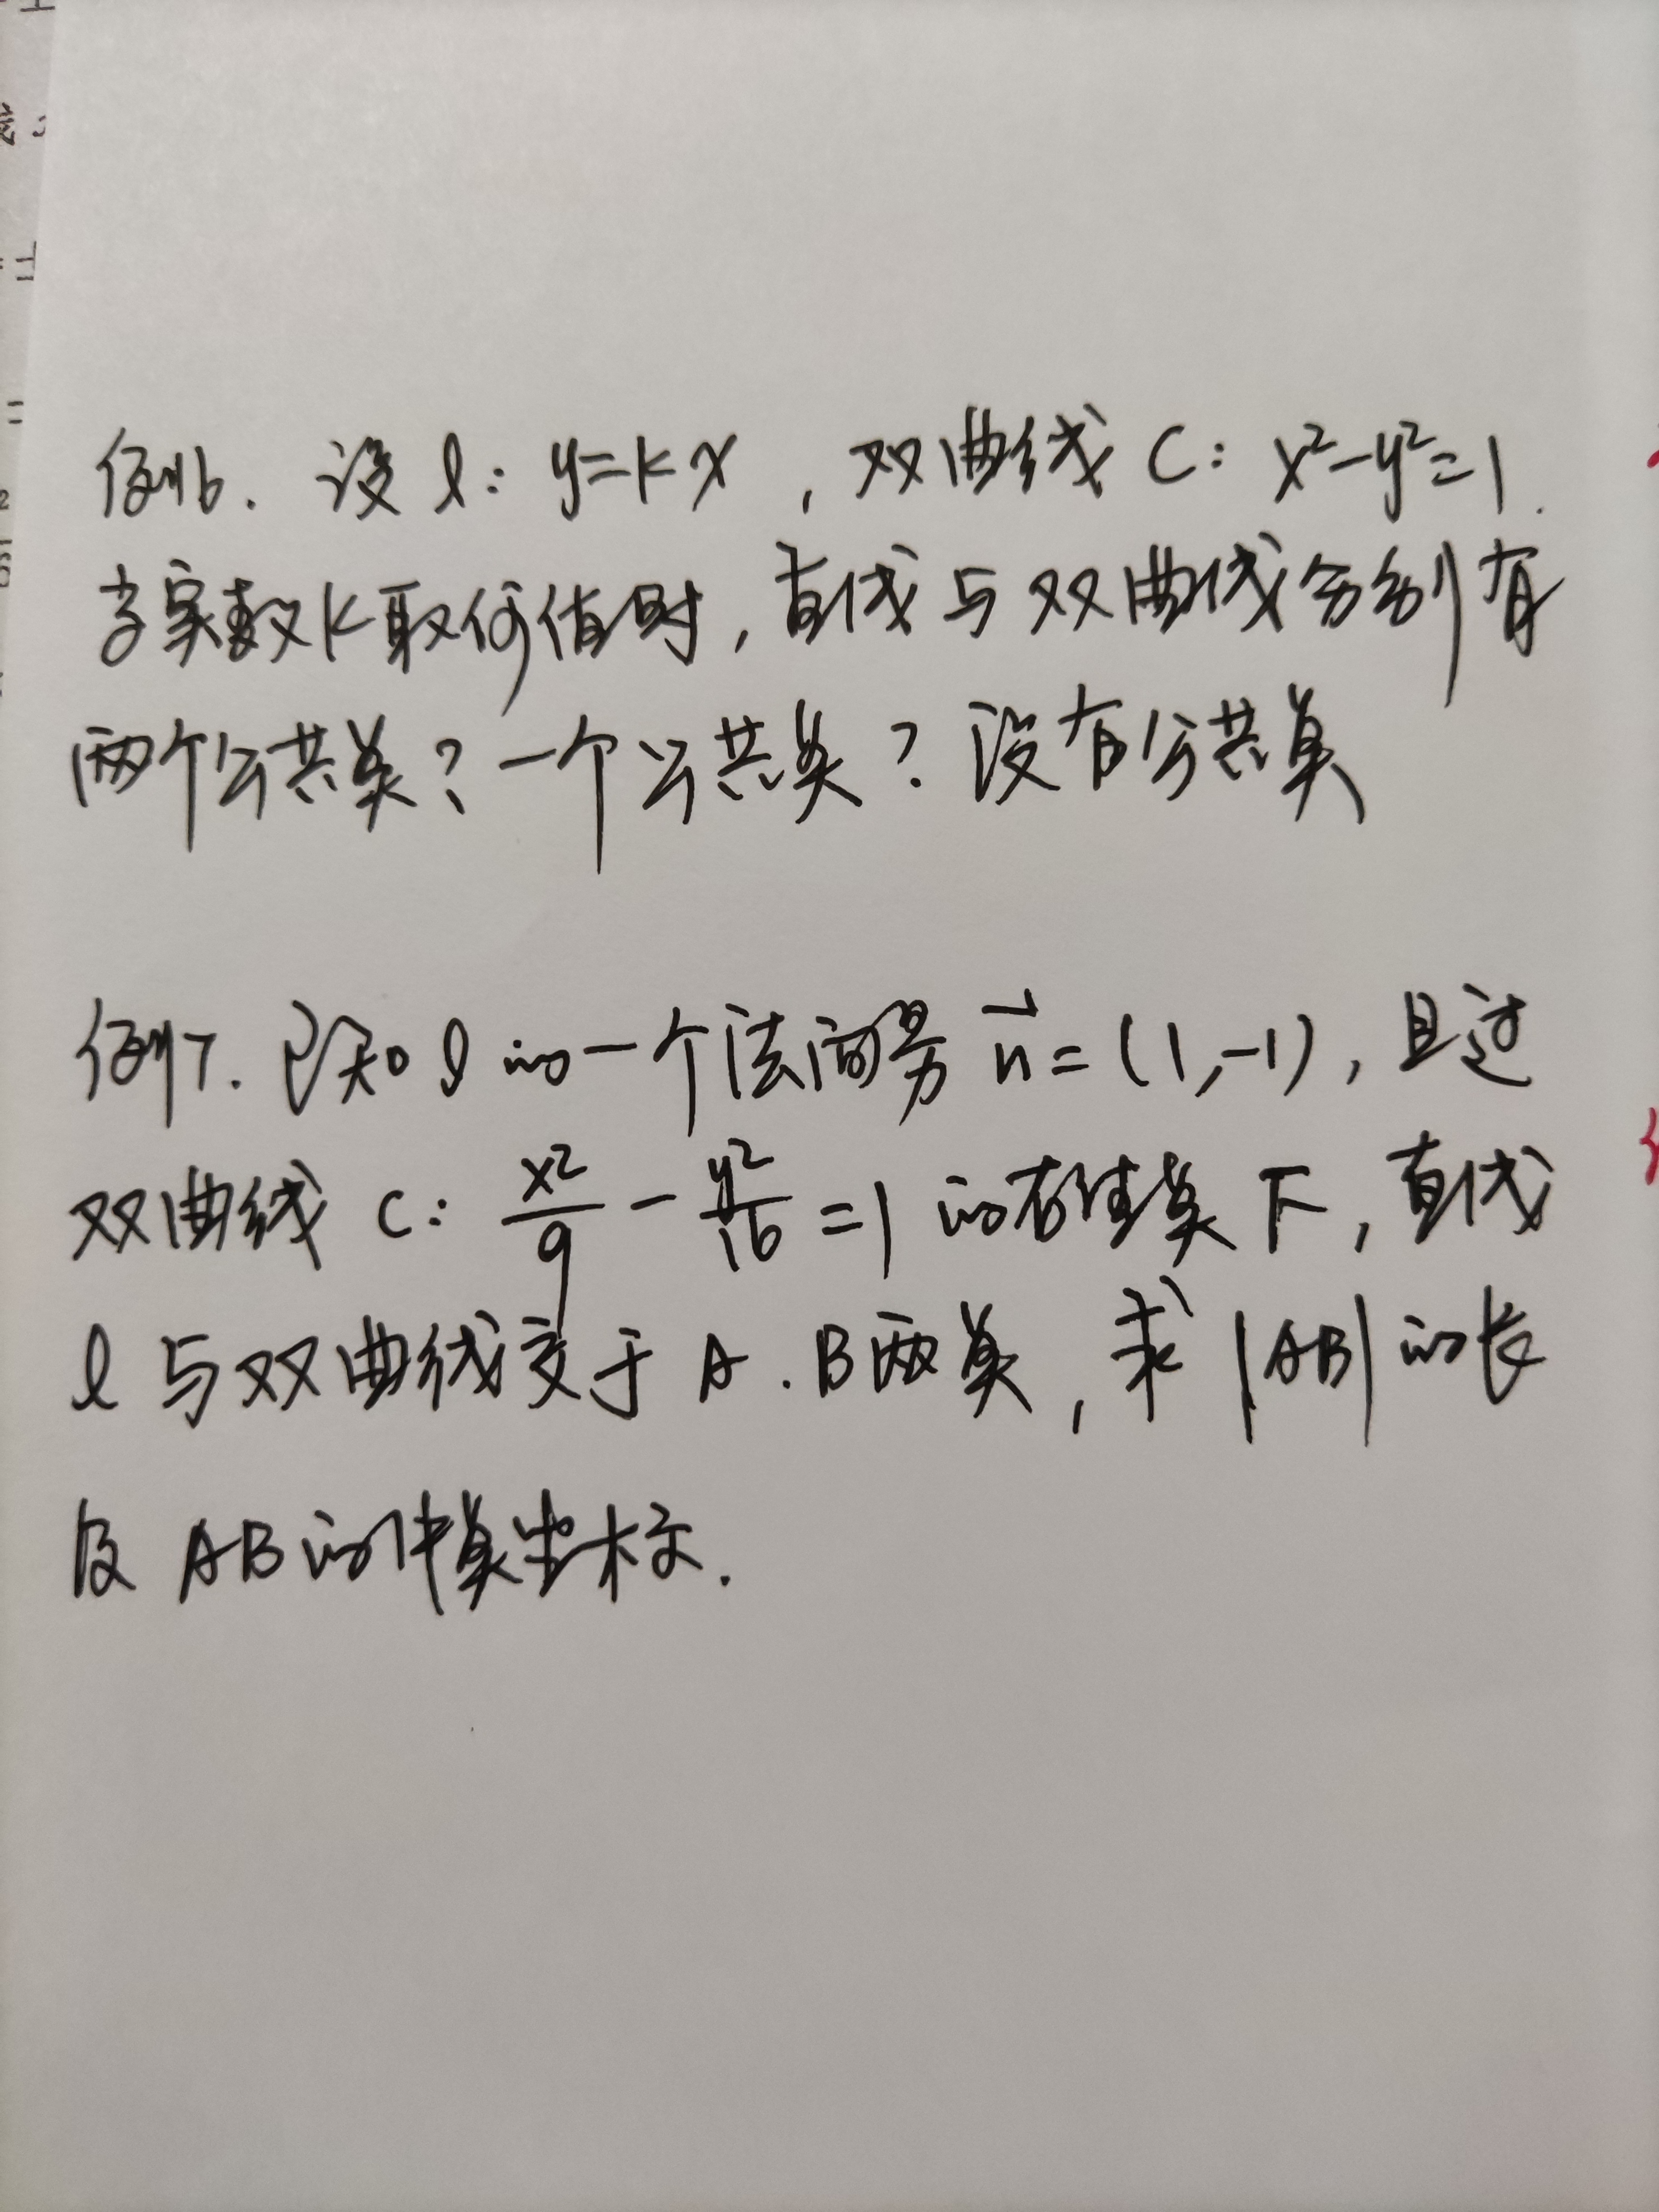 例6. 设 l: y=kx , 双曲线 C: x²-y²=1.
当实数k取何值时, 直线与双曲线分别有
两个公共点? 一个公共点? 没有公共点
例7. 已知 l 的一个法向量 n⃗=(1,-1), 且过
双曲线 C: x²/9 - y²/16 =1 的右焦点 F, 直线
l 与双曲线交于 A.B两点, 求 |AB| 的长
及 AB的中点坐标.